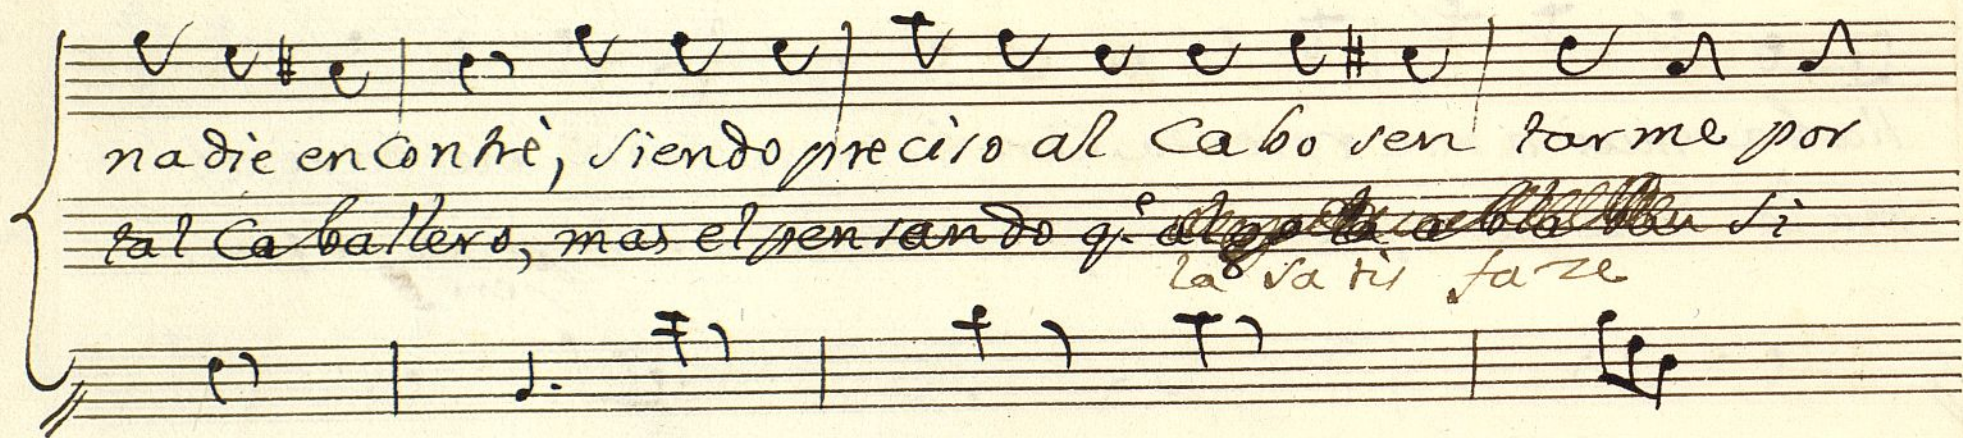 nadie encontrè, siendo preciso al Cabo sen tarme por
tal Caballero, mas el pensando q.e si
la satis faze